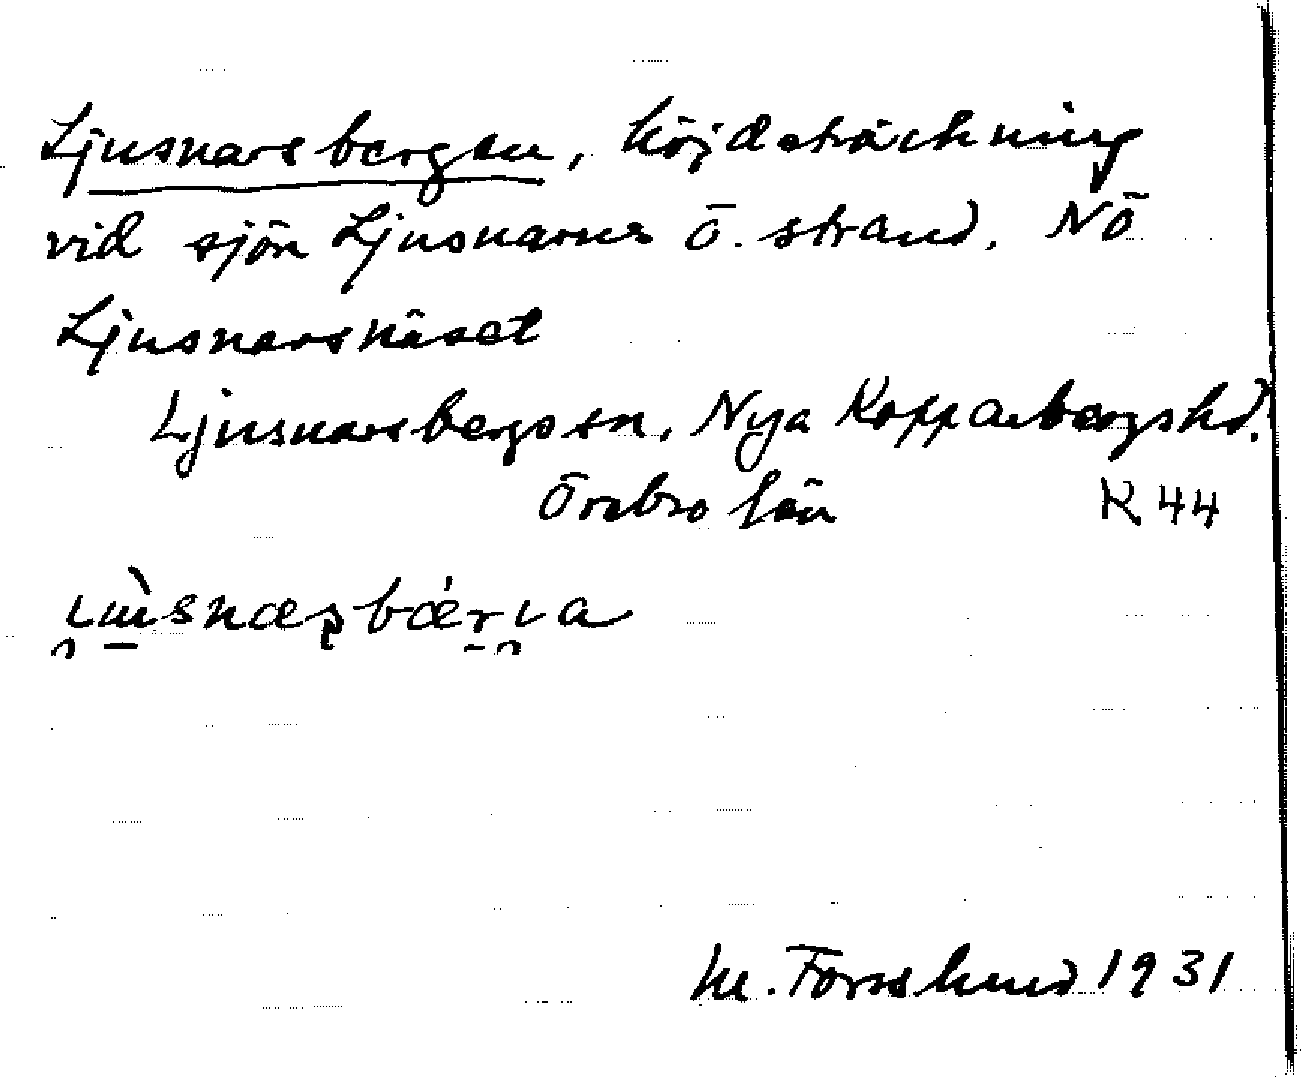 Ljusnarsbergen, höjdsträckning
vid sjön Ljusnarns ö. strand. NÖ
Ljusnarsnäset
Ljusnarsbergs sn, Nya Kopparbergs hd.
Örebro län K 44
M. Forsslund 1931